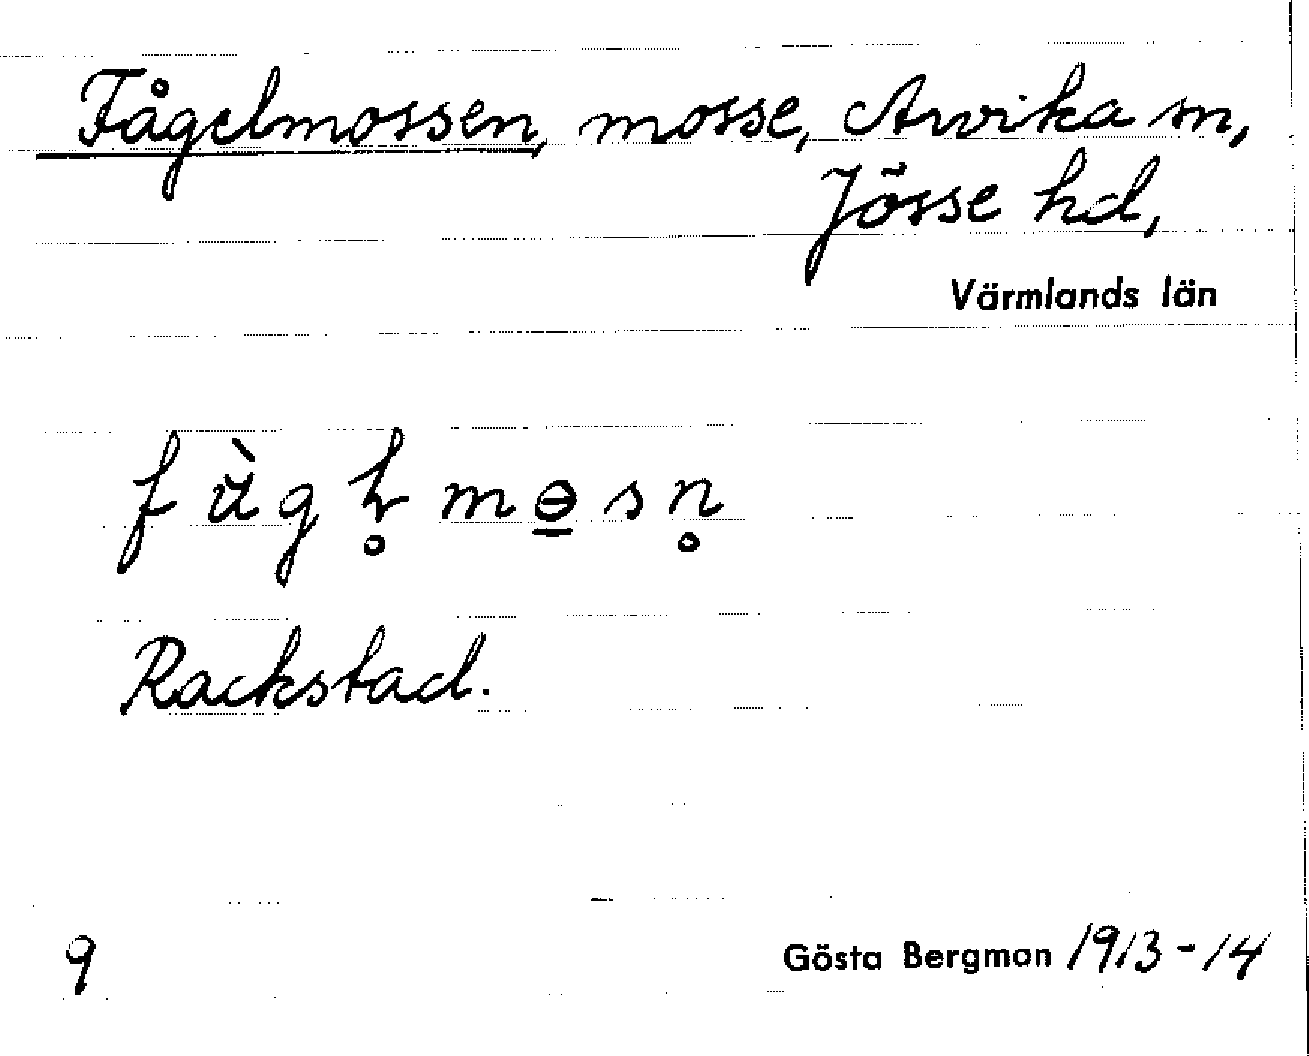 Fågelmossen, mosse, Arvika sn,
Jösse hd,
Värmlands län
Rackstad.
9
Gösta Bergman 1913-14